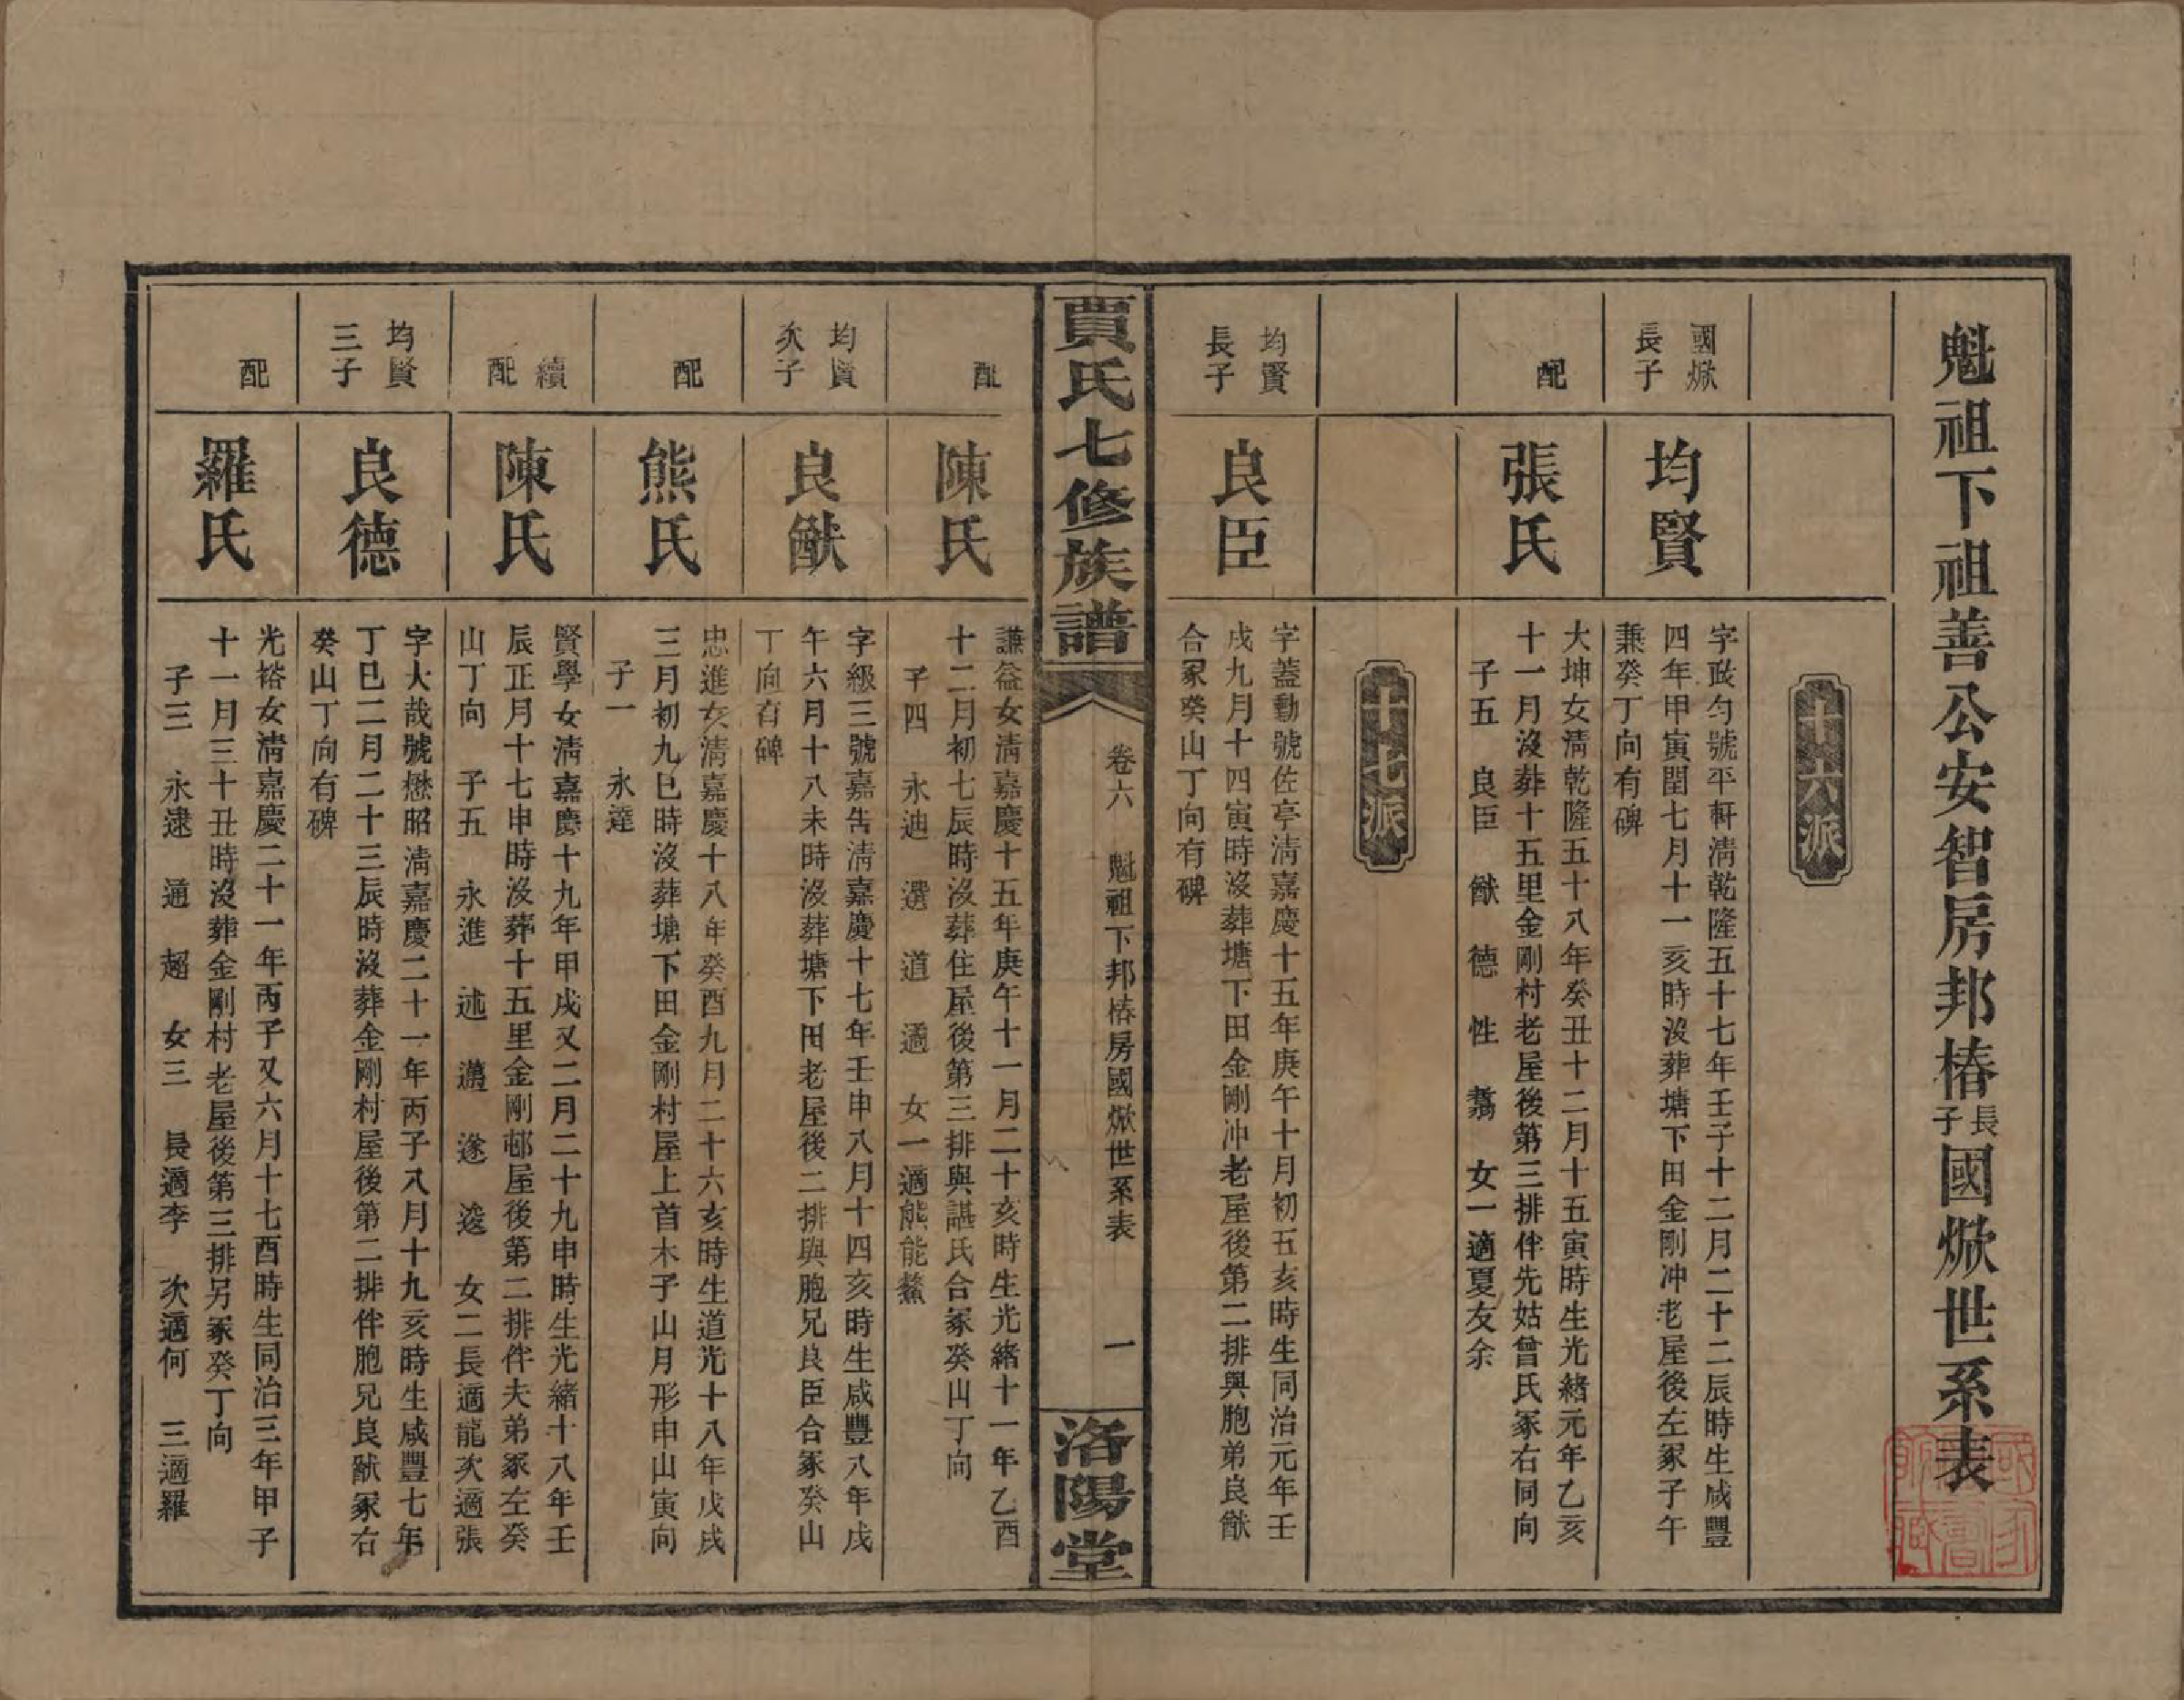 魁祖下祖善公安智房邦椿長子國焮世系表
十六派
國焮長子
均賢
字政勻號平軒清乾隆五十七年壬子十二月二十二辰時生咸豐
四年甲寅閏七月十一亥時沒葬塘下田金剛冲老屋後左冢子午
兼癸丁向有碑
配
張氏
大坤女清乾隆五十八年癸丑十二月十五寅時生光緒元年乙亥
十一月沒葬十五里金剛村老屋後第三排伴先姑曾氏冢右同向
子五 良臣 猷 德 性 翥 女一適夏友余
十七派
均賢長子
良臣
字蓋勳號佐亭清嘉慶十五年庚午十月初五亥時生同治元年壬
戌九月十四寅時沒葬塘下田金剛冲老屋後第二排與胞弟良猷
合冢癸山丁向有碑
賈氏七修族譜
卷六 魁祖下邦椿房國焮世系表
一
洛陽堂
配
陳氏
謙益女清嘉慶十五年庚午十一月二十亥時生光緒十一年乙酉
十二月初七辰時沒葬住屋後第三排與諶氏合冢癸山丁向
子四 永迪 選 道 適 女一適熊能鰲
均賢次子
良猷
字級三號嘉告清嘉慶十七年壬申八月十四亥時生咸豐八年戊
午六月十八未時沒葬塘下田老屋後二排與胞兄良臣合冢癸山
丁向有碑
配
熊氏
忠進女清嘉慶十八年癸酉九月二十六亥時生道光十八年戊戌
三月初九巳時沒葬塘下田金剛村屋上首木子山月形申山寅向
子一 永達
續配
陳氏
賢學女清嘉慶十九年甲戌又二月二十九申時生光緒十八年壬
辰正月十七申時沒葬十五里金剛邨屋後第二排伴夫弟冢左癸
山丁向 子五 永進 述 邁 遂 逡 女二長適龍次適張
均賢三子
良德
字大哉號懋昭清嘉慶二十一年丙子八月十九亥時生咸豐七年
丁巳二月二十三辰時沒葬金剛村屋後第二排伴胞兄良猷冢右
癸山丁向有碑
配
羅氏
光裕女清嘉慶二十一年丙子又六月十七酉時生同治三年甲子
十一月三十丑時沒葬金剛村老屋後第三排另冢癸丁向
子三 永逮 通 超 女三 長適李 次適何 三適羅